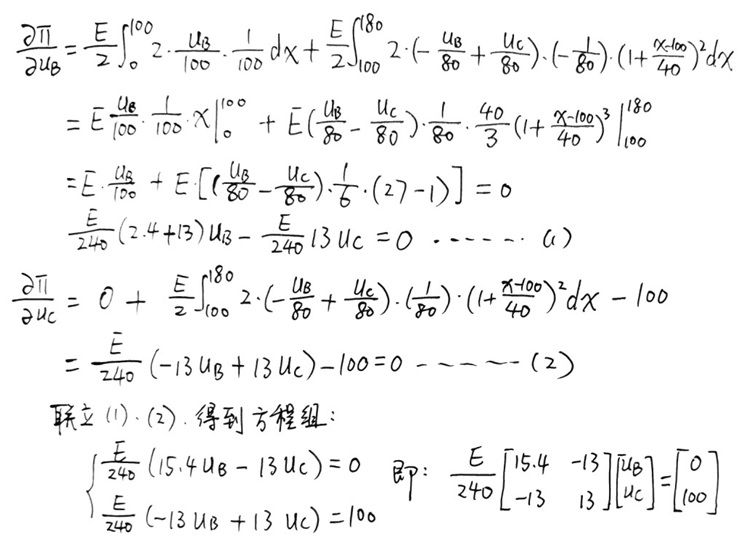 ∂Π/∂u_B = E/2 ∫₀¹⁰⁰ 2·u_B/100·1/100 dx + E/2 ∫₁₀₀¹⁸⁰ 2·(-u_B/80 + u_C/80)·(-1/80)·(1+(x-100)/40)² dx
= E u_B/100·1/100·x|₀¹⁰⁰ + E(u_B/80 - u_C/80)·1/80·40/3(1+(x-100)/40)³|₁₀₀¹⁸⁰
= E·u_B/100 + E·[(u_B/80 - u_C/80)·1/6·(27-1)] = 0
E/240 (2.4+13)u_B - E/240 13u_C = 0 ······· (1)
∂Π/∂u_C = 0 + E/2 ∫₁₀₀¹⁸⁰ 2·(-u_B/80 + u_C/80)·(1/80)·(1+(x-100)/40)² dx - 100
= E/240 (-13u_B + 13u_C) - 100 = 0 ------ (2)
联立(1)·(2)·得到方程组:
{ E/240 (15.4u_B - 13u_C) = 0
E/240 (-13u_B + 13u_C) = 100
即: E/240 [15.4 -13; -13 13][u_B; u_C] = [0; 100]